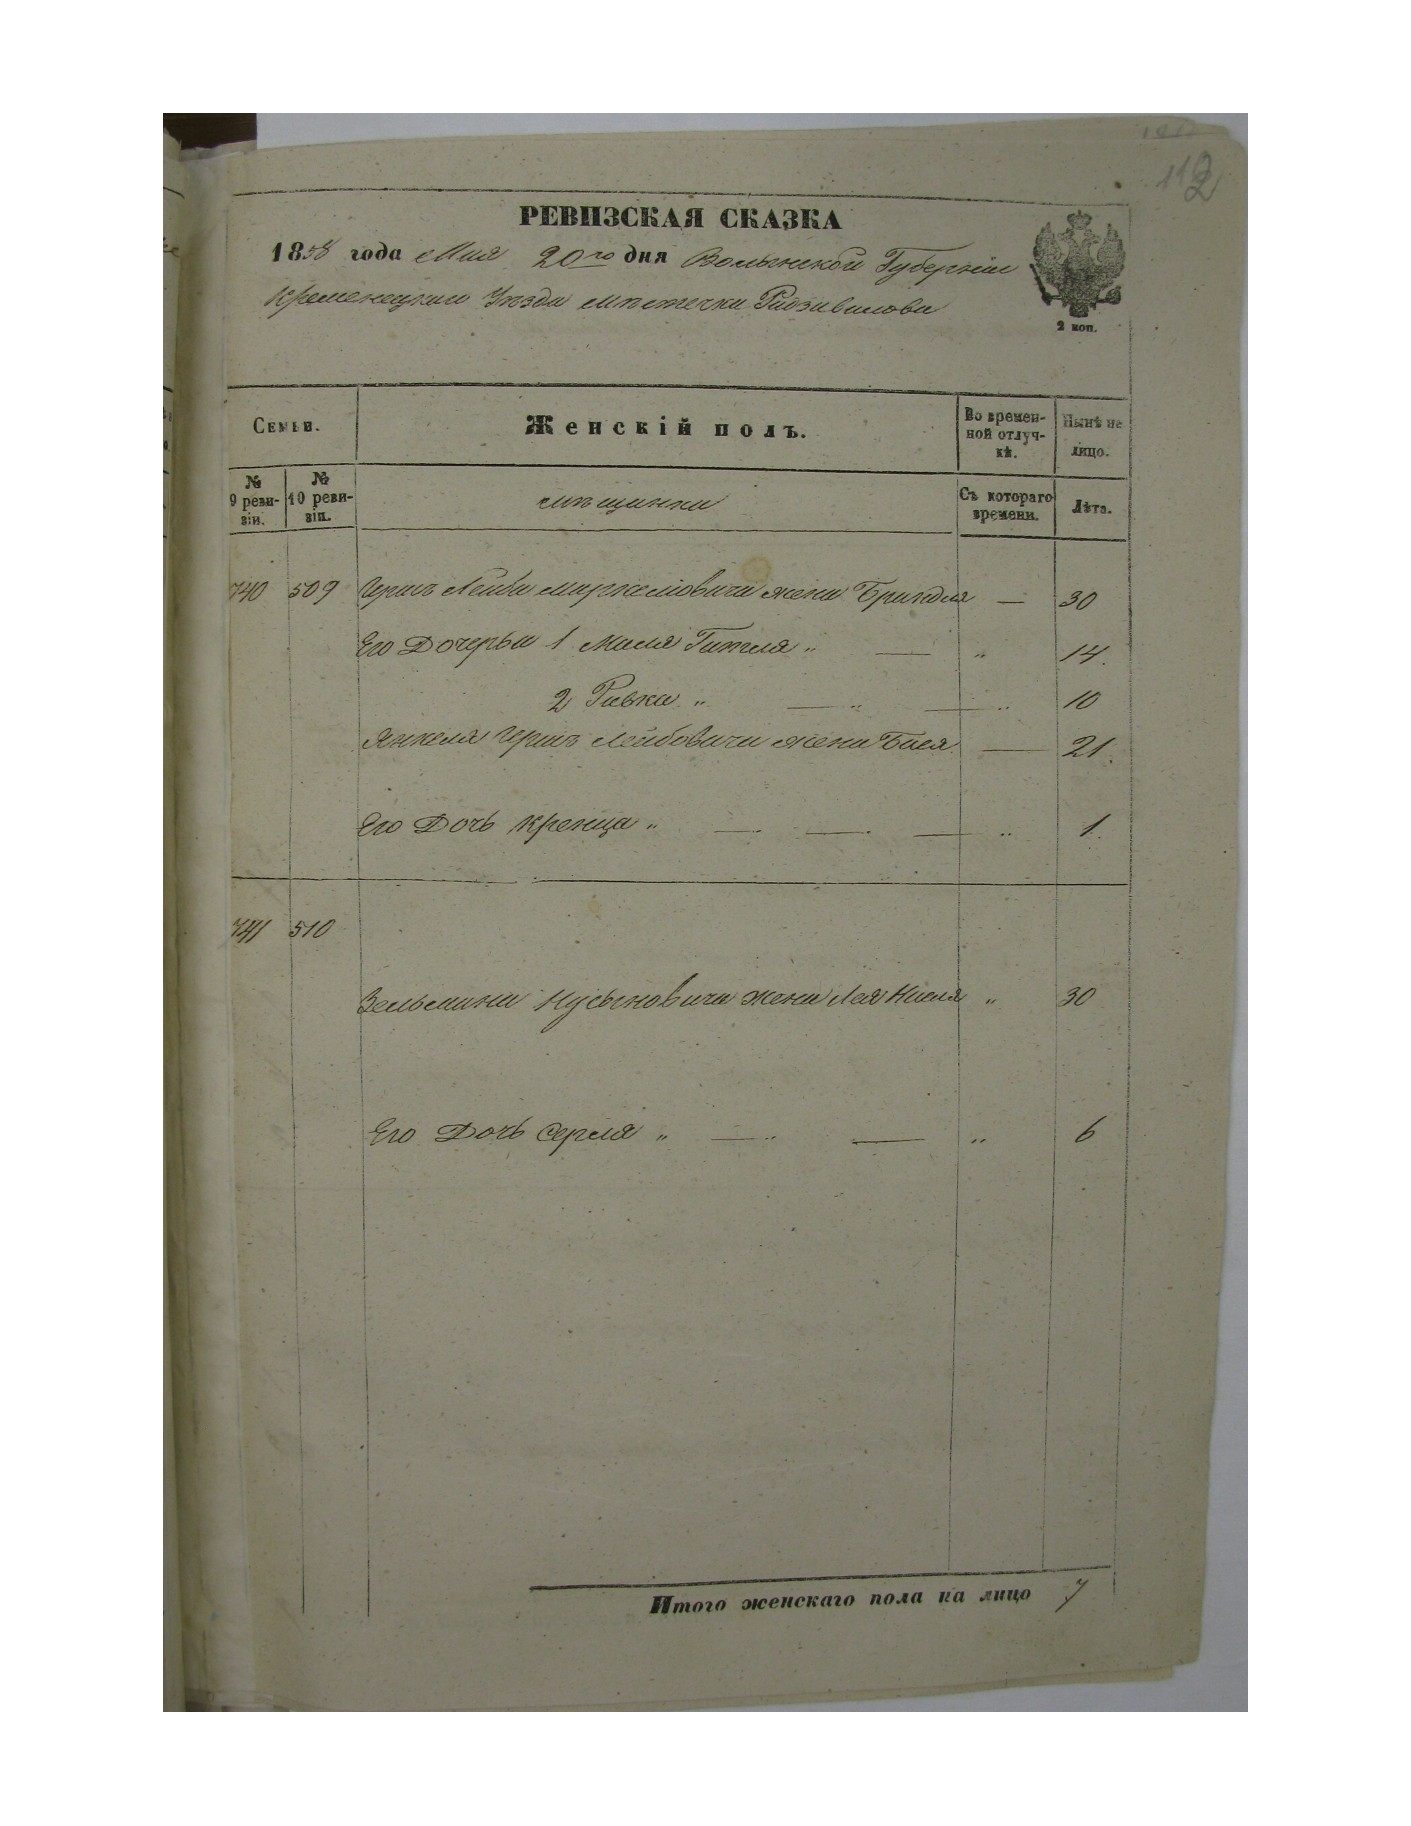 112
РЕВИЗСКАЯ СКАЗКА
1858 года Мая 20го дня Волынской Губерніи
Кременецкаго Уѣзда мѣстечка Радзивилова
2 коп.
Семьи.
Женскій полъ.
Во времен-
ной отлуч-
кѣ.
Нынѣ на
лицо.
№
9 реви-
зіи.
№
10 реви-
зіи.
мѣщанки
Съ котораго
времени.
Лѣта.
740 509 Герша Лейба жена Бриндля — 30
Его Дочерьи 1 Маля Гитля " — " 14.
2 Ривка " — " — " 10
Янкеля Герша Лейбовича жена Бася — 21.
Его Дочь Крейца " — — — " 1.
741 510
Зельмана Нусыновича жена Лея " 30
Его Дочь Серля " — " — " 6
Итого женскаго пола на лицо 7